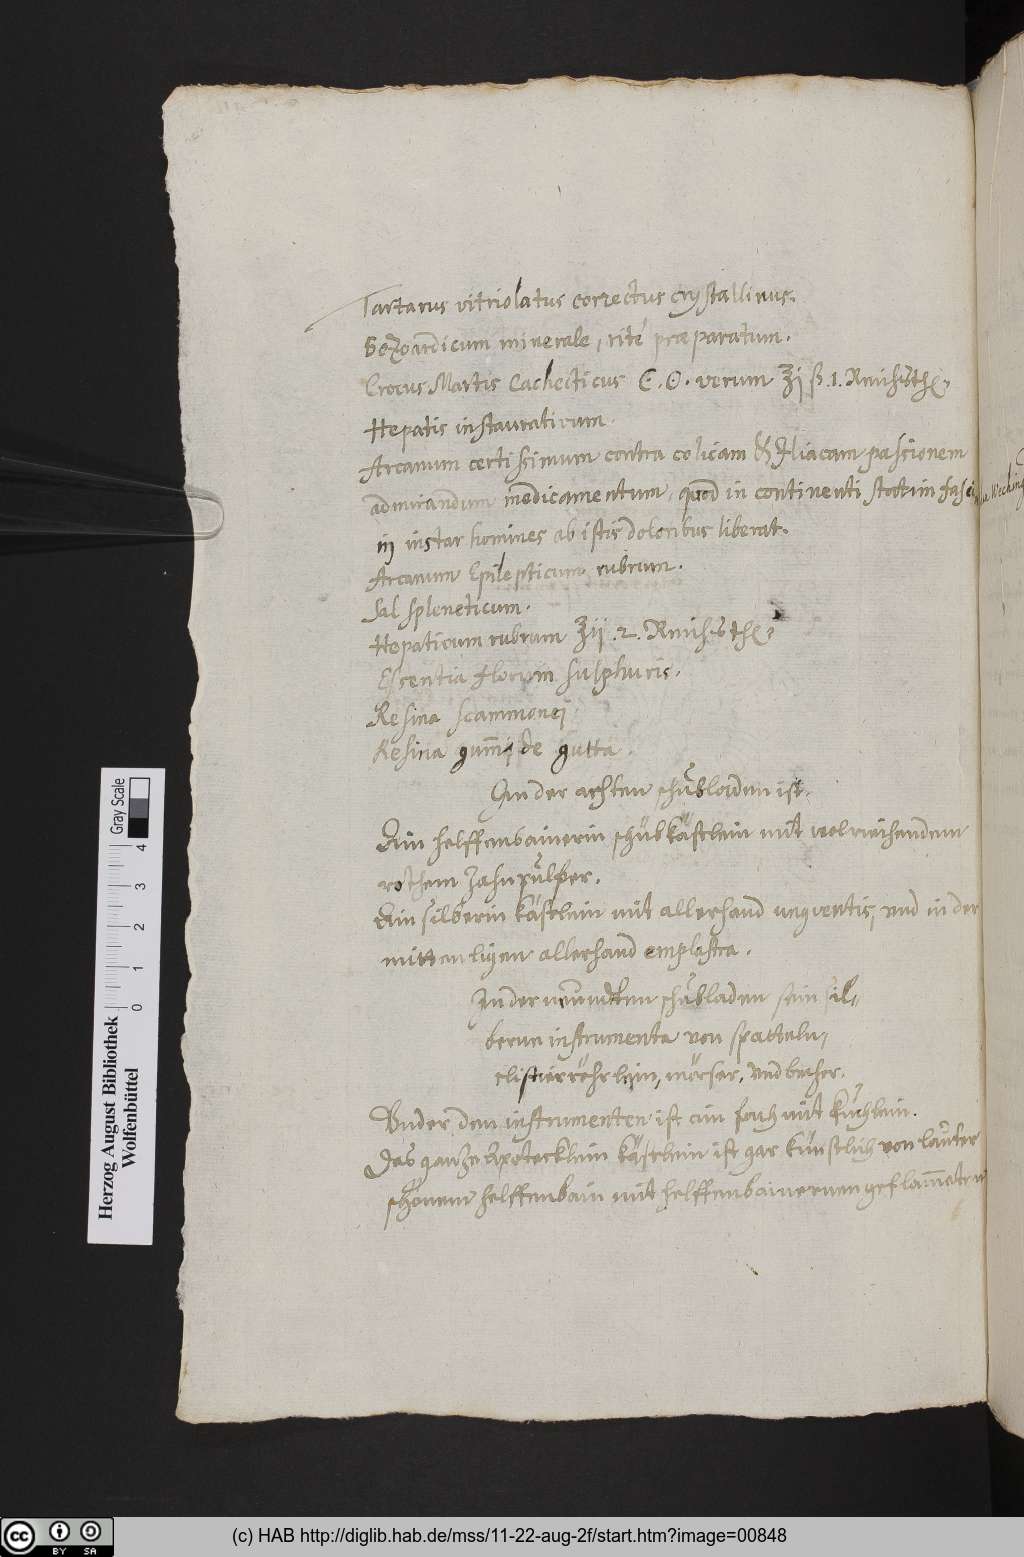 Tartarus vitriolatus correctus crystallinus.
Bezoardicum minerale, rité præparatum.
Crocus Martis Cachecticus C. O. verum ʒj ß. 1.
Hepatis instaurativum.
Arcanum certissimum contra colicam & Iliacam passionem
admirandum medicamentum, quod in continenti statim fasci
nij instar homines ab istis doloribus liberat.
Arcanum Epilepticum rubrum.
Sal spleneticum.
Hepaticum rubrum ʒij . 2.
Essentia florum sulphuris.
Resina scammonej.
Resina gum̄j de gutta.
In der achten schŭbladen ist.
Ein helffenbainerin schŭbkästlein mit wolriechendem
rothem Zahnpŭlfer.
Ein silberin kästlein mit allerhand unguentis, und in der
mitten ligen allerhand emplastra.
In der neŭndten schŭbladen sein sil-
berne instrumenta von spattuln,
clistierröhrlein, mörser, und becher.
Under den instrumenten ist ein fach mit kŭchlein.
Das gantze Apotecklein kästlein ist gar künstlich von laŭter
schönem helffenbain mit helffenbainernen geflam̄eten
Herzog August Bibliothek
Wolfenbüttel
0 1 2 3 4
Gray Scale
(c) HAB http://diglib.hab.de/mss/11-22-aug-2f/start.htm?image=00848
cc BY SA